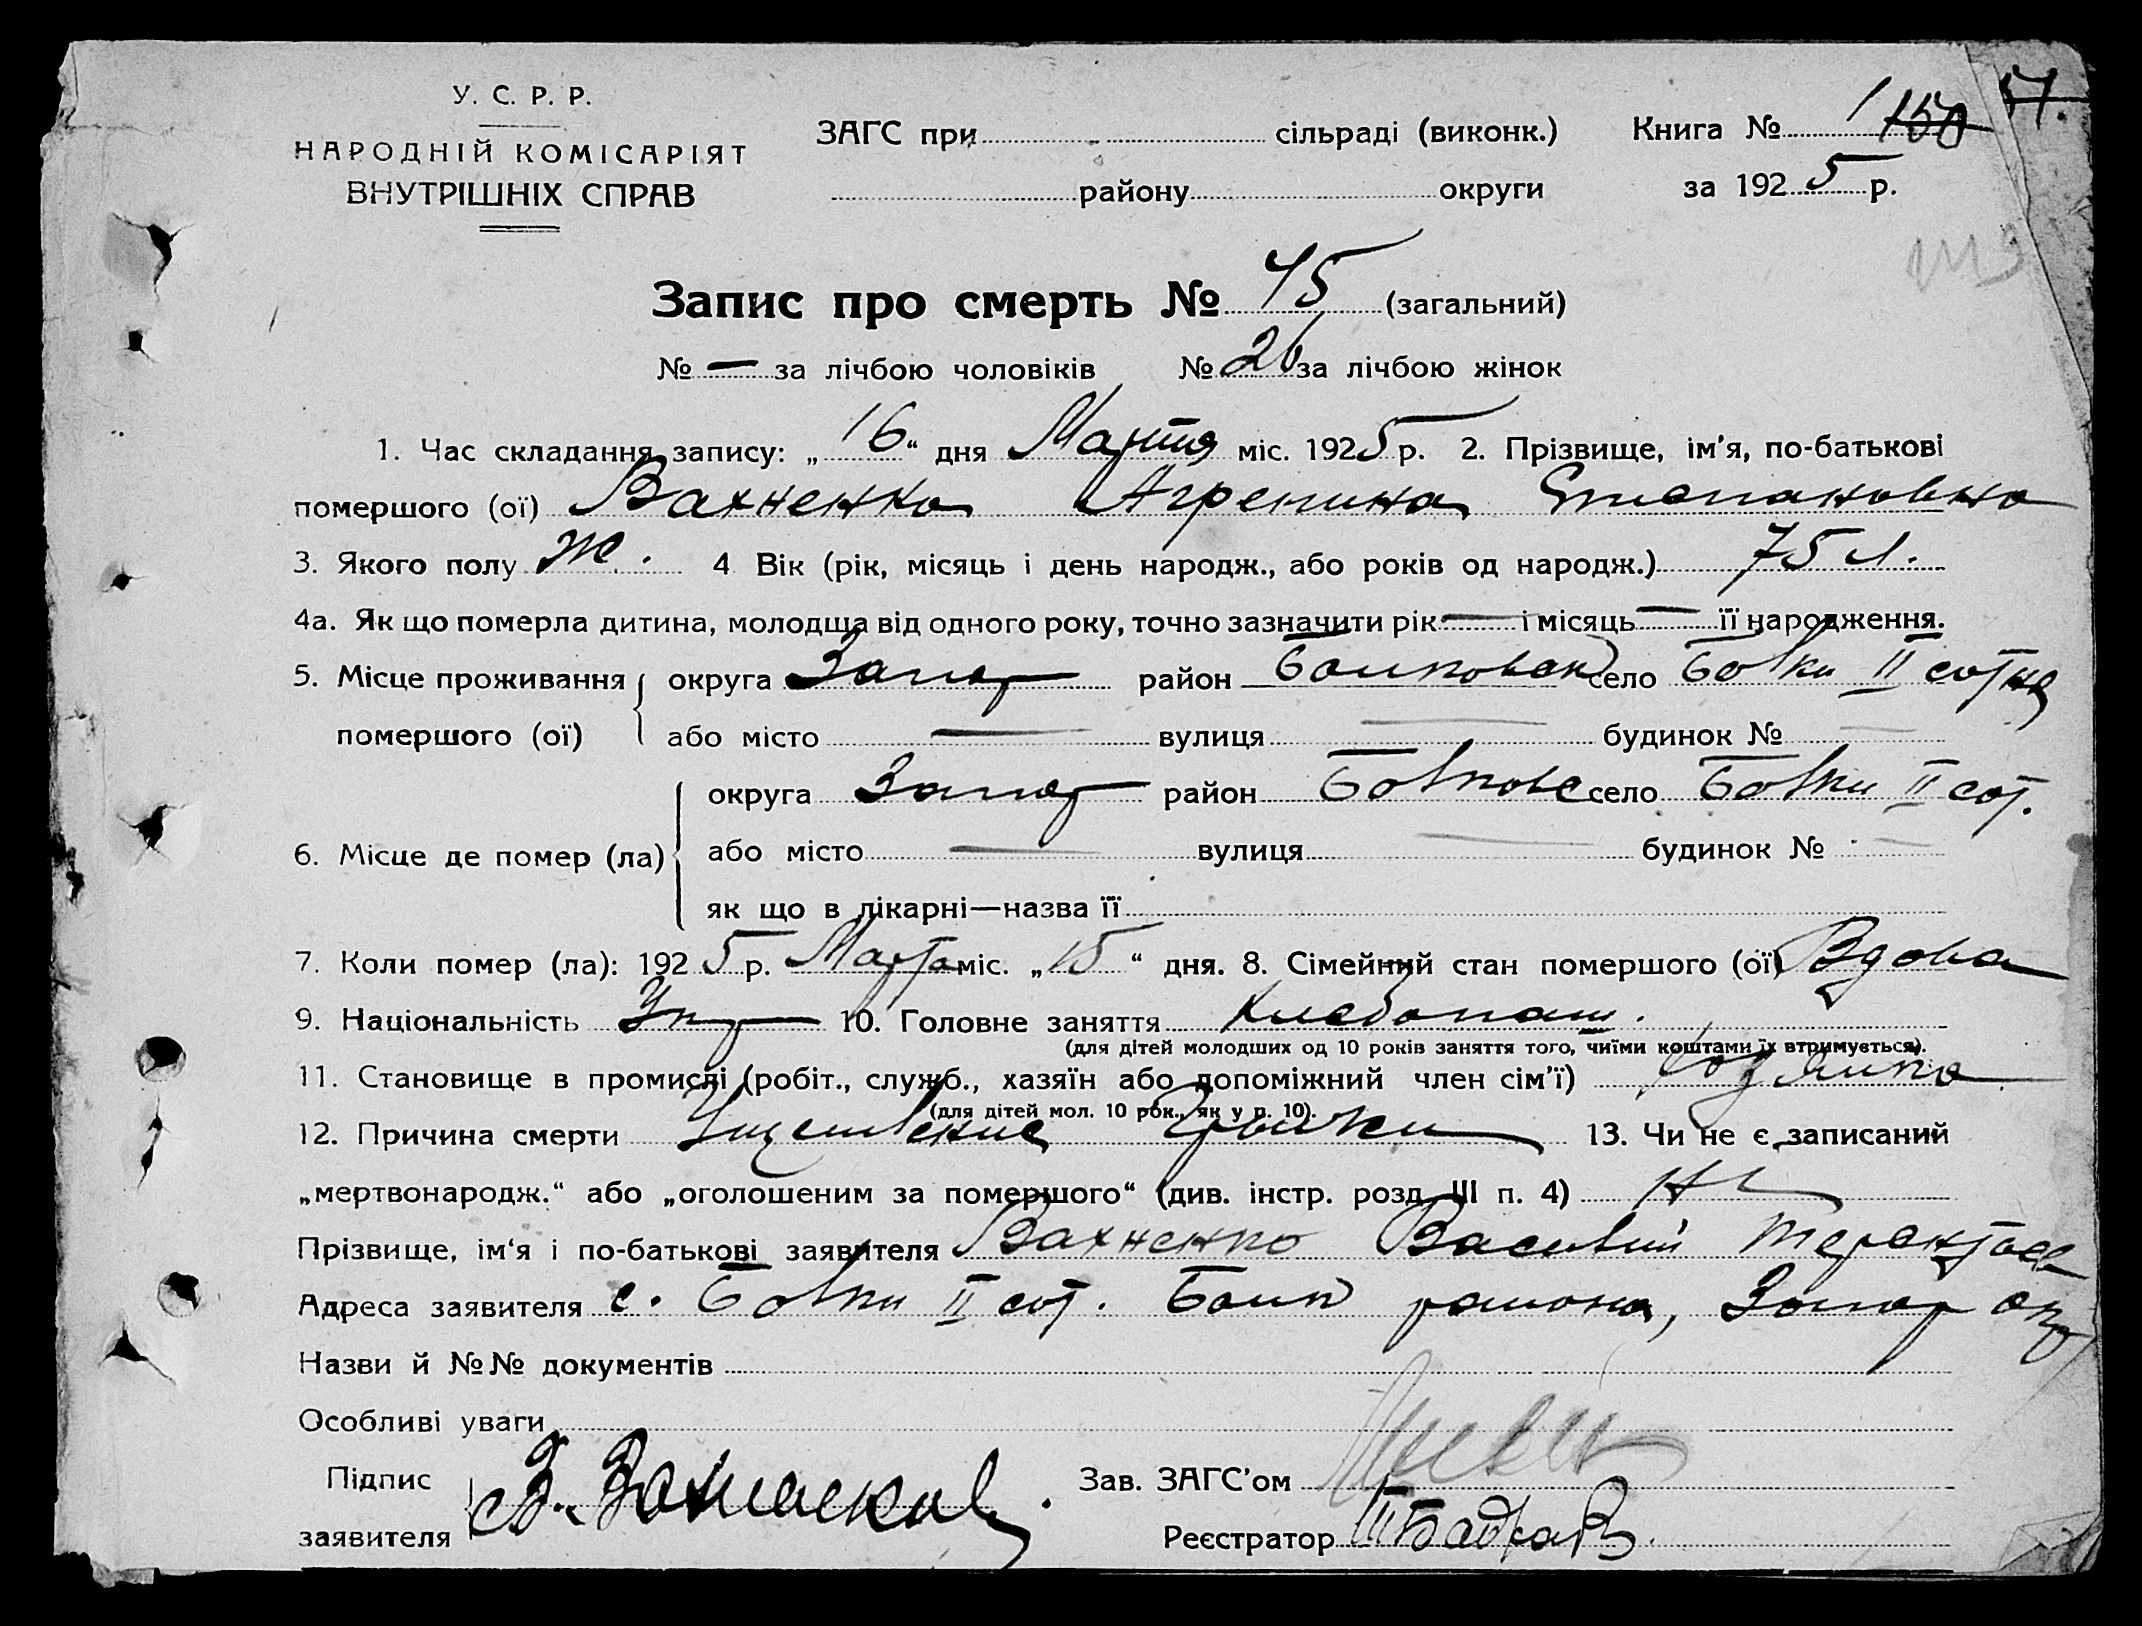 У. С. Р. Р.
НАРОДНІЙ КОМІСАРІЯТ
ВНУТРІШНІХ СПРАВ
ЗАГС при сільраді (виконк.)
району округи
Книга № 1 150 51.
за 1925 р.
Запис про смерть № 45 (загальний)
№ — за лічбою чоловіків № 26 за лічбою жінок
1. Час складання запису: „16“ дня Марта міс. 1925 р. 2. Прізвище, ім'я, по-батькові
помершого (ої) Вахненко Агрепина Степановна
3. Якого полу Ж. 4 Вік (рік, місяць і день народж., або років од народж.) 75 л.
4а. Як що померла дитина, молодща від одного року, точно зазначити рік — і місяць — її народження.
5. Місце проживання округа Запор район Балковск село Балки II сотня
помершого (ої) або місто — вулиця — будинок № —
округа Запор район Балковс село Балки II сот.
6. Місце де помер (ла) або місто — вулиця — будинок № —
як що в лікарні—назва її
7. Коли помер (ла): 1925 р. Марта міс. „15“ дня. 8. Сімейний стан помершого (ої) Вдова
9. Національність Укр 10. Головне заняття Хлебопаш.
(для дітей молодших од 10 років заняття того, чиїми коштами їх втримується).
11. Становище в промислі (робіт., служб., хазяїн або допоміжний член сім'ї) Хозяйка
(для дітей мол. 10 рок., як у п. 10).
12. Причина смерти Ущемление Грыжи 13. Чи не є записаний
„мертвонародж.“ або „оголошеним за помершого“ (див. інстр. розд. III п. 4)
Прізвище, ім'я і по-батькові заявителя Вахненко Василий
Адреса заявителя с. Балки II сот. Балк района, Запор окр
Назви й №№ документів
Особливі уваги
Підпис
заявителя
Зав. ЗАГС'ом
Реєстратор